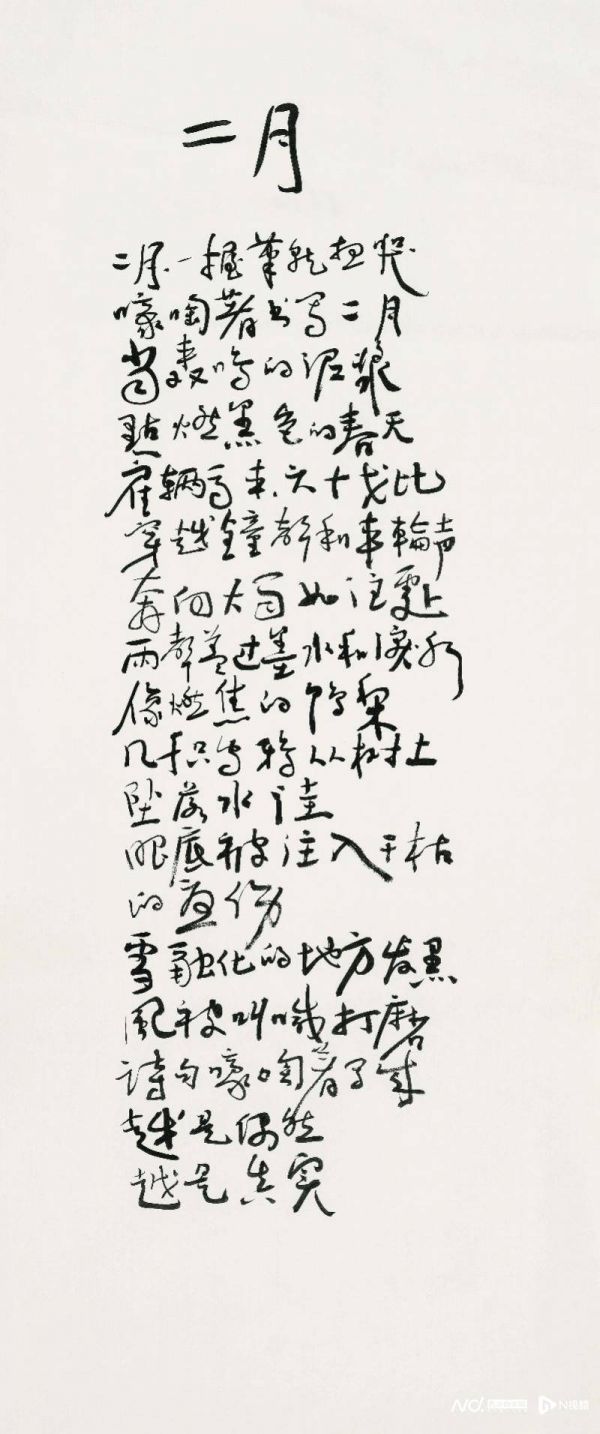 二月
二月.一握筆就想哭
嚎啕著书写二月
当轰鸣的泥浆
點燃黑色的春天
雇辆马車.六十戈比
穿越鐘聲和車輪声
奔向大雨如注處
雨聲盖过墨水和淚水
像燃焦的鸭梨
几千只乌鸦从树上
坠落水洼
眼底被注入干枯
的憂伤
雪融化的地方发黑
風被叫喊打磨
诗句嚎啕著写成
越是偶然
越是真实
N视频